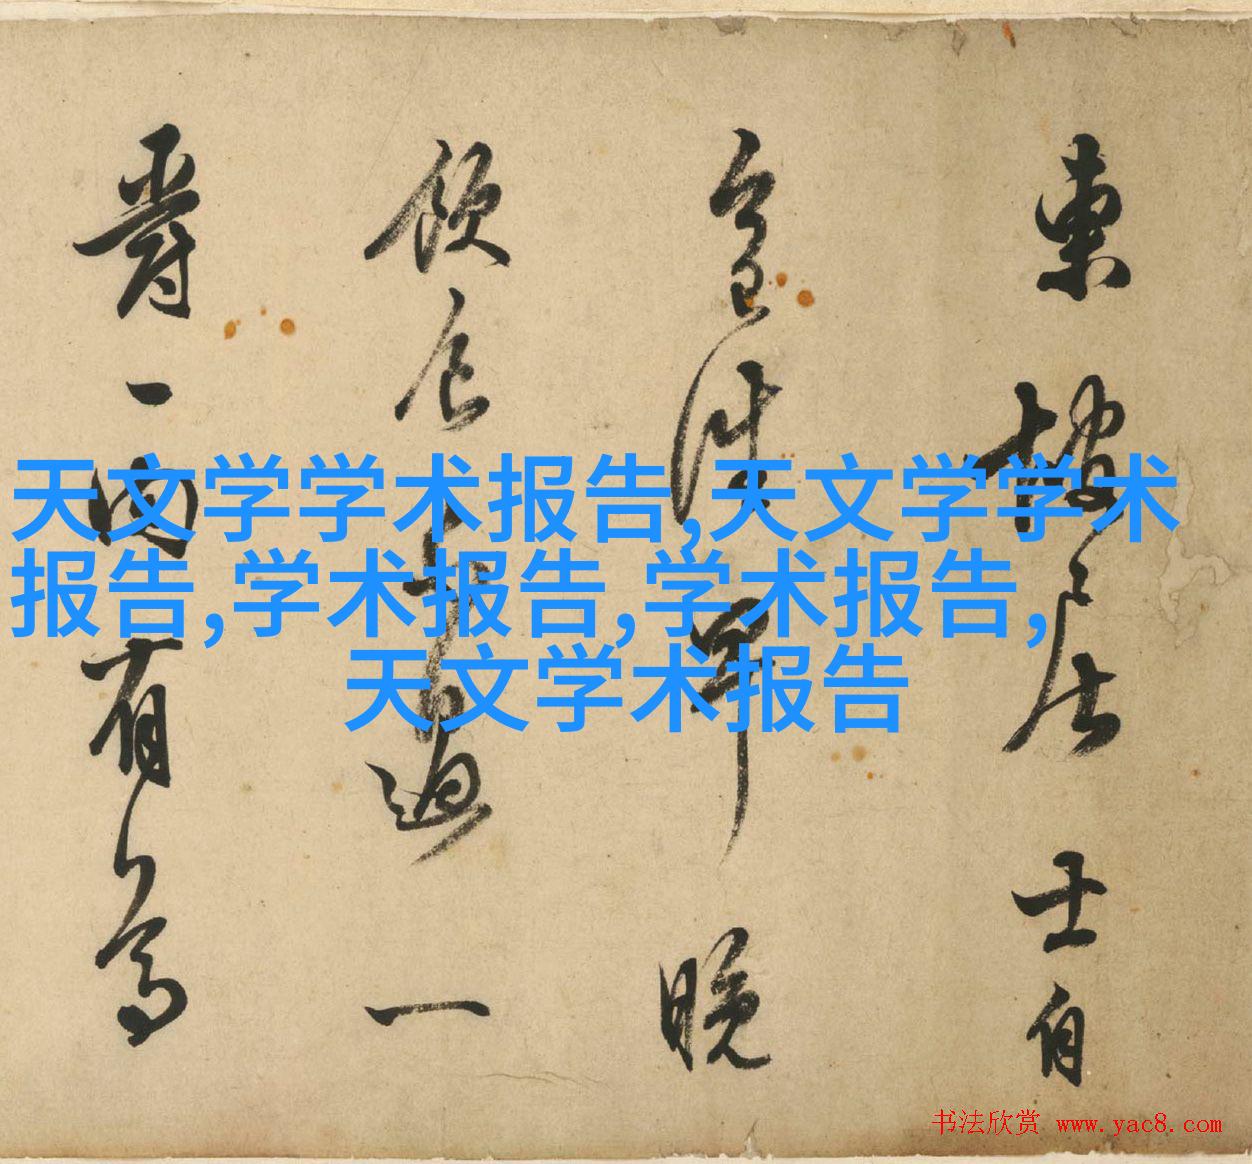 天文学学术报告,天文学学术
报告,学术报告,学术报告,
天文学术报告
東坡居士自
今日早晚
飲食過一
爵一肉有
书法欣赏 www.yac8.com